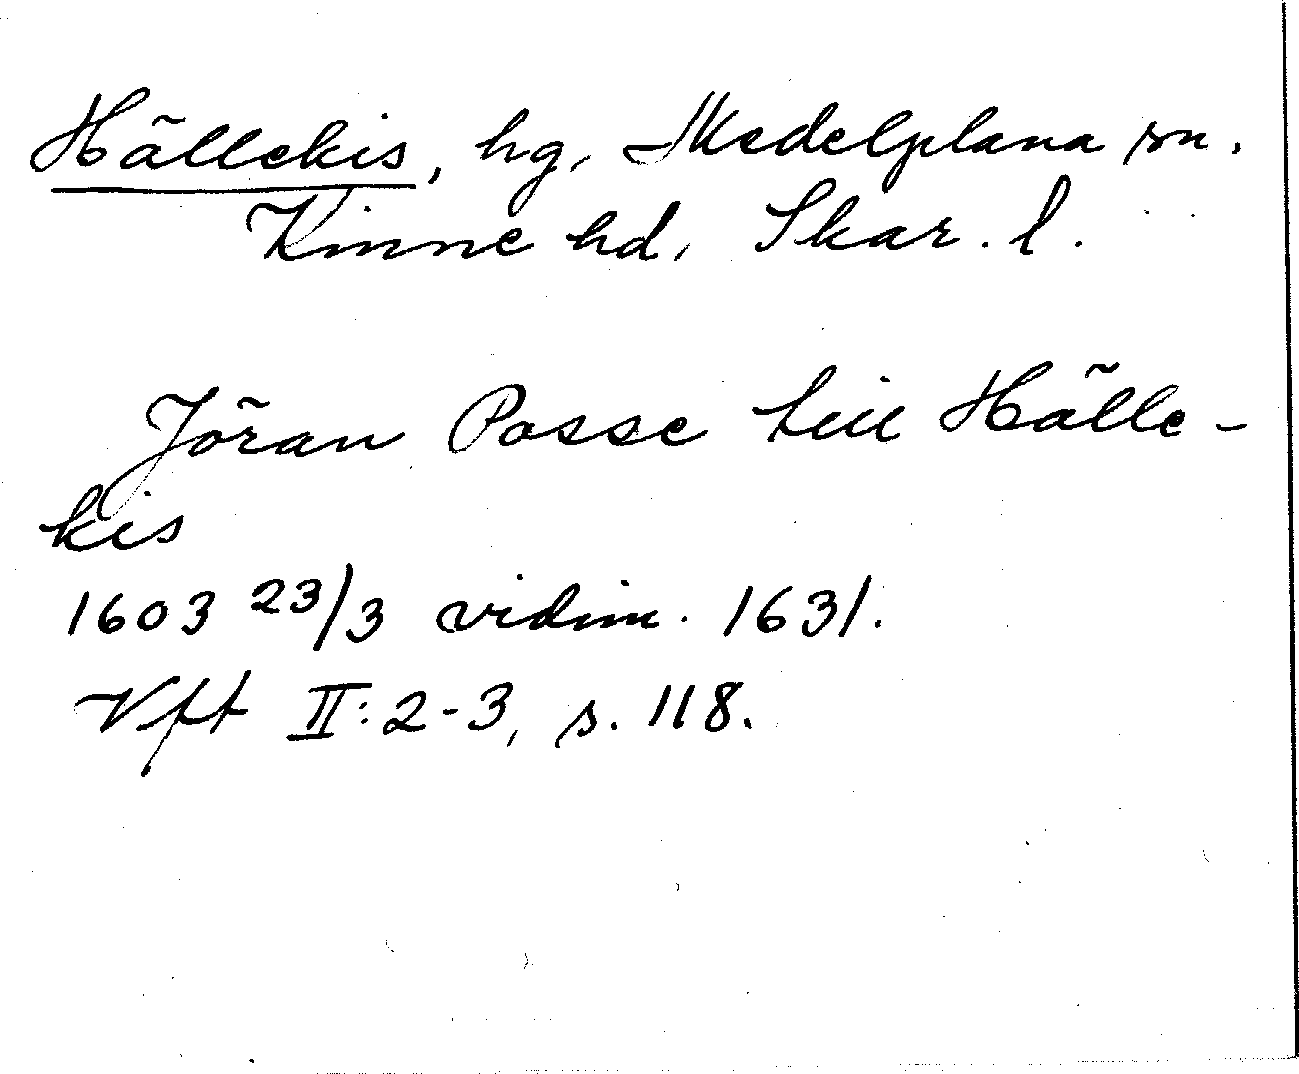 Hällekis, hg, Medelplana sn.
Kinne hd, Skar. l.
Jöran Posse till Hälle-
kis
1603 23/3 vidim. 1631.
Vft II:2-3, s. 118.